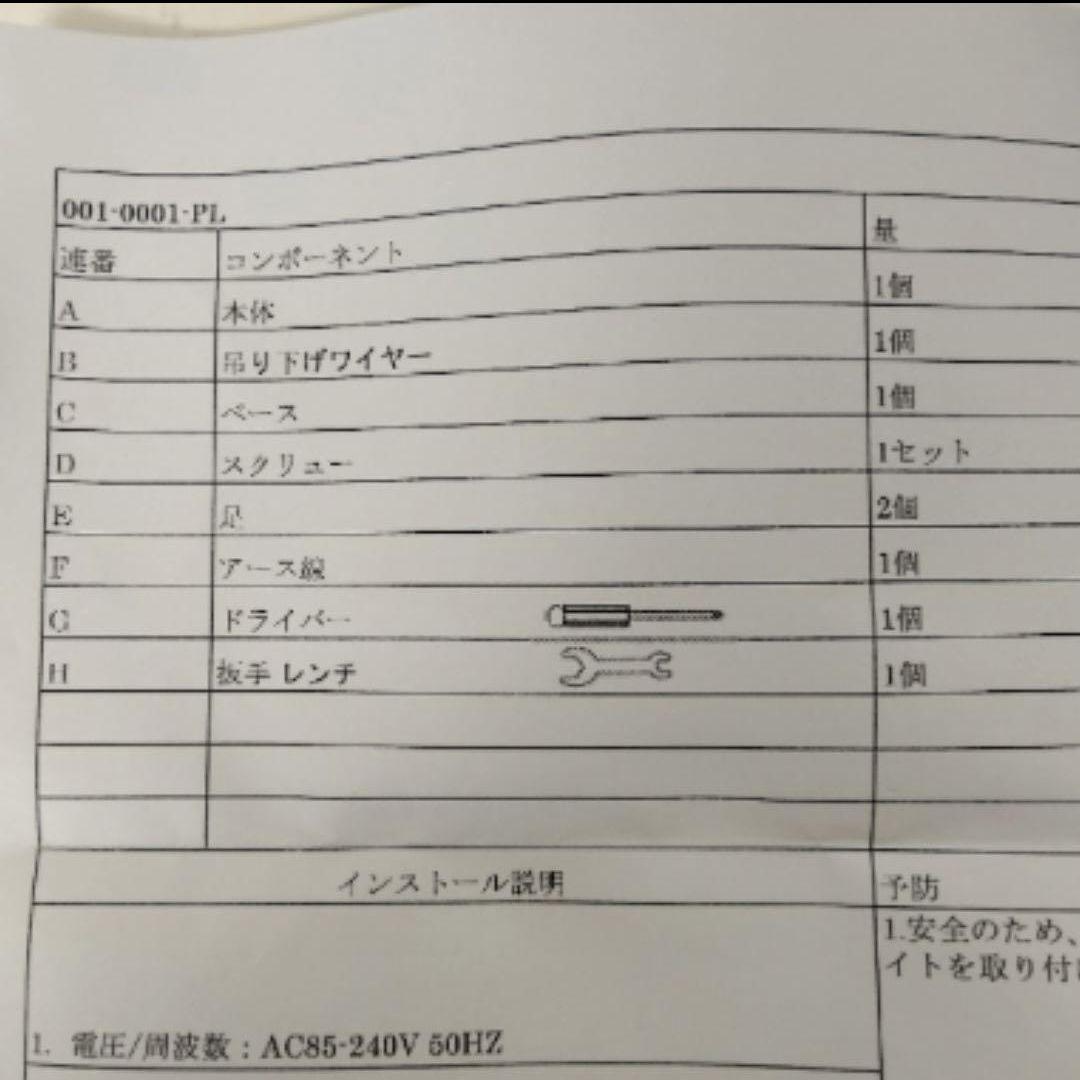 001-0001-PL
連番 コンポーネント 量
A 本体 1個
B 吊り下げワイヤー 1個
C ベース 1個
D スクリュー 1セット
E 足 2個
F アース線 1個
G ドライバー 1個
H 扳手 レンチ 1個
インストール説明 予防
1.安全のため、
イトを取り付け
1. 電圧/周波数：AC85-240V 50HZ